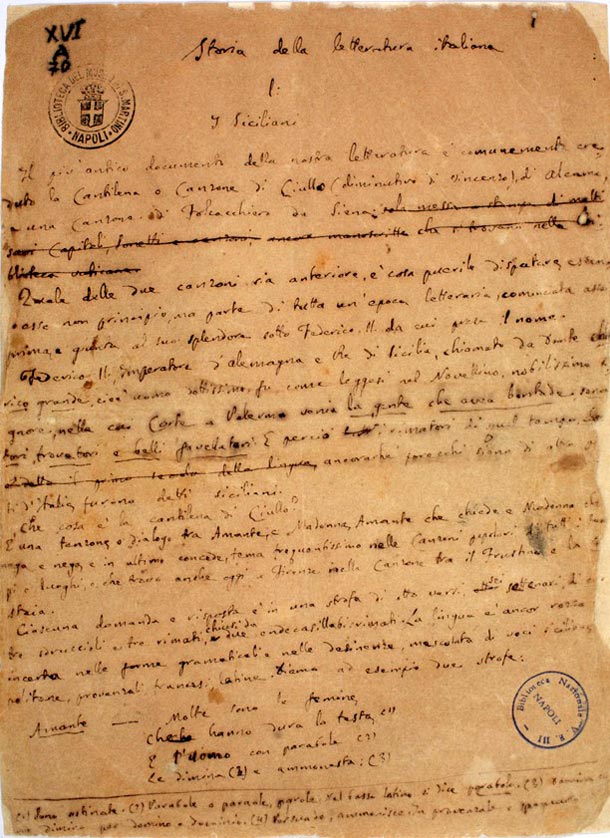 XVI
A
70
BIBLIOTECA DEL S. MARTINO
NAPOLI
Storia della letteratura italiana
I:
I Siciliani
Il più antico documento della nostra letteratura è comunemente cre-
duto la Cantilena o Canzone di Ciullo (diminutivo di Vincenzo), di Alcamo,
e una Canzone di Folcacchiero da Siena: solo messa a stampa, di molti
Capitoli, Sonetti e canzoni, ancora manoscritte che si trovano nella Bi-
blioteca vaticana.
Quale delle due canzoni sia anteriore, è cosa puerile disputare, essendo
esse non principio, ma parte di tutta un'epoca letteraria, cominciata assai
prima, e giunta al suo splendore sotto Federico II, da cui prese il nome.
Federico II, imperatore d'Alemagna e Re di Sicilia, chiamato da Dante che-
rico grande, cioè uomo dottissimo, fu, come leggesi nel Novellino, nobilissimo si-
gnore, nella cui Corte a Palermo venia la gente che avea bontade, sona-
tori, trovatori e belli favellatori. E perciò i rimatori di quel tempo,
il primo secolo della lingua, ancorachè parecchi siano di altra par-
ti d'Italia, furono detti siciliani.
Che cosa è la cantilena di Ciullo?
È una tenzone, o dialogo tra Amante, e Madonna, Amante che chiede, e Madonna che
nega e nega, e in ultimo concede, tema frequentissimo nelle Canzoni popolari di tutti i tem-
pi e luoghi, e che trovo anche oggi a Firenze nella Canzone tra il Frustino e la Cre-
staia.
Ciascuna domanda e risposta è in una strofa di otto versi, sei settenari, di cui
tre sdruccioli e tre rimati, chiusi da due endecasillabi rimati. La lingua è ancor rozza
incerta nelle forme grammaticali e nelle desinenze, mescolata di voci siciliane,
politane, provenzali, francesi, latine. Diamo ad esempio due strofe:
Amante — Molte sono le femine,
Che hanno dura la testa, (1)
E l'uomo con parabole (2)
Le dimina (3) e ammonesta: (3)
Biblioteca Nazionale V. E. III
NAPOLI
(1) Sono ostinate. (2) Parabole o paraole, parole. Nel basso latino si dice parabola. (3)
dimina per domina e (4) Persuade, ammonisce, in provenzale e spagnuolo